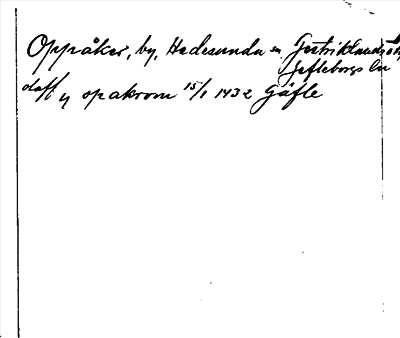 Oppåker, by, Hedesunda sn, Gestriklands
Gefleborgs län
y opakrom 15/1 1432 Gäfle